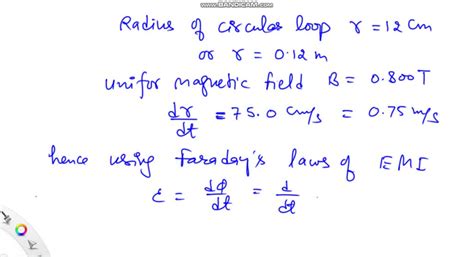 www.BANDICAM.com
Radius of circular loop r = 12 Cm
or r = 0.12 m
unifor magnetic field B = 0.800T
dr/dt = 75.0 Cm/s = 0.75 m/s
hence using faraday's laws of EMI
ε = dΦ/dt = d/dt